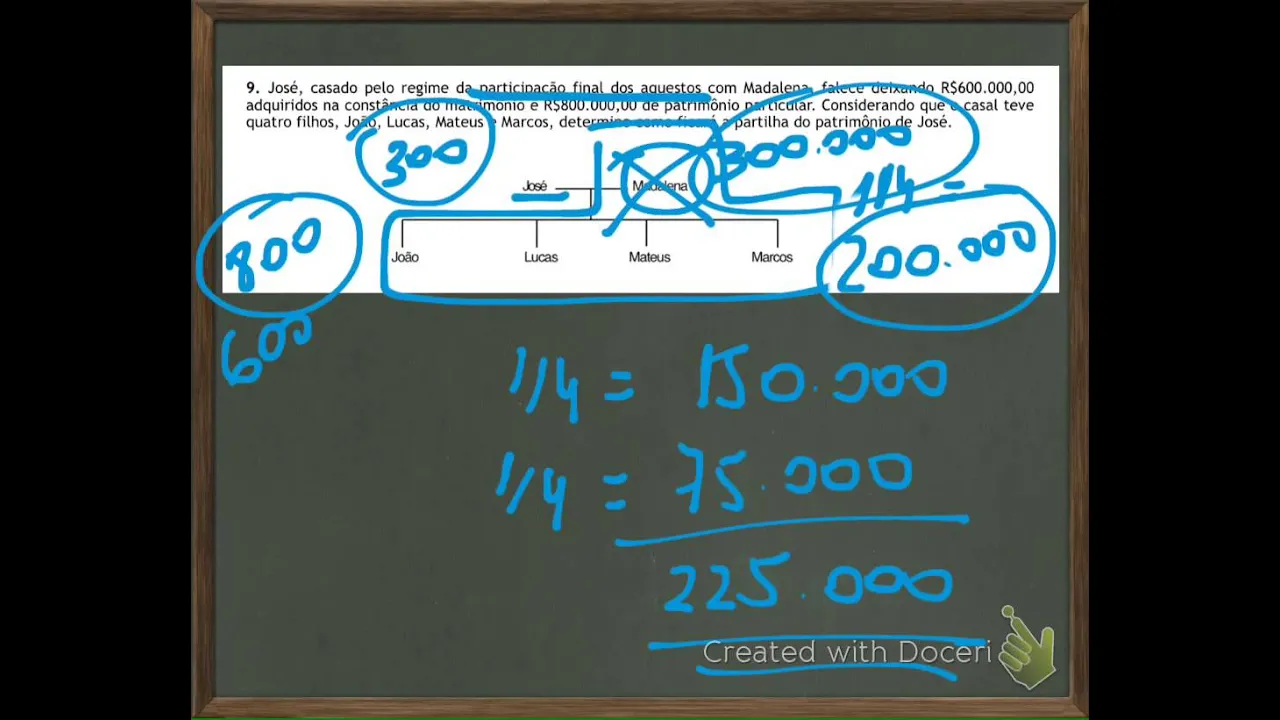 9. José, casado pelo regime da participação final dos aquestos com Madalena, falece deixando R$600.000,00
adquiridos na constância do matrimônio e R$800.000,00 de patrimônio particular. Considerando que o casal teve
quatro filhos, João, Lucas, Mateus e Marcos, determine como ficará a partilha do patrimônio de José.
300
300.000
José
Madalena
1/4 =
800
200.000
João Lucas Mateus Marcos
600
1/4 = 150.000
1/4 = 75.000
225.000
Created with Doceri